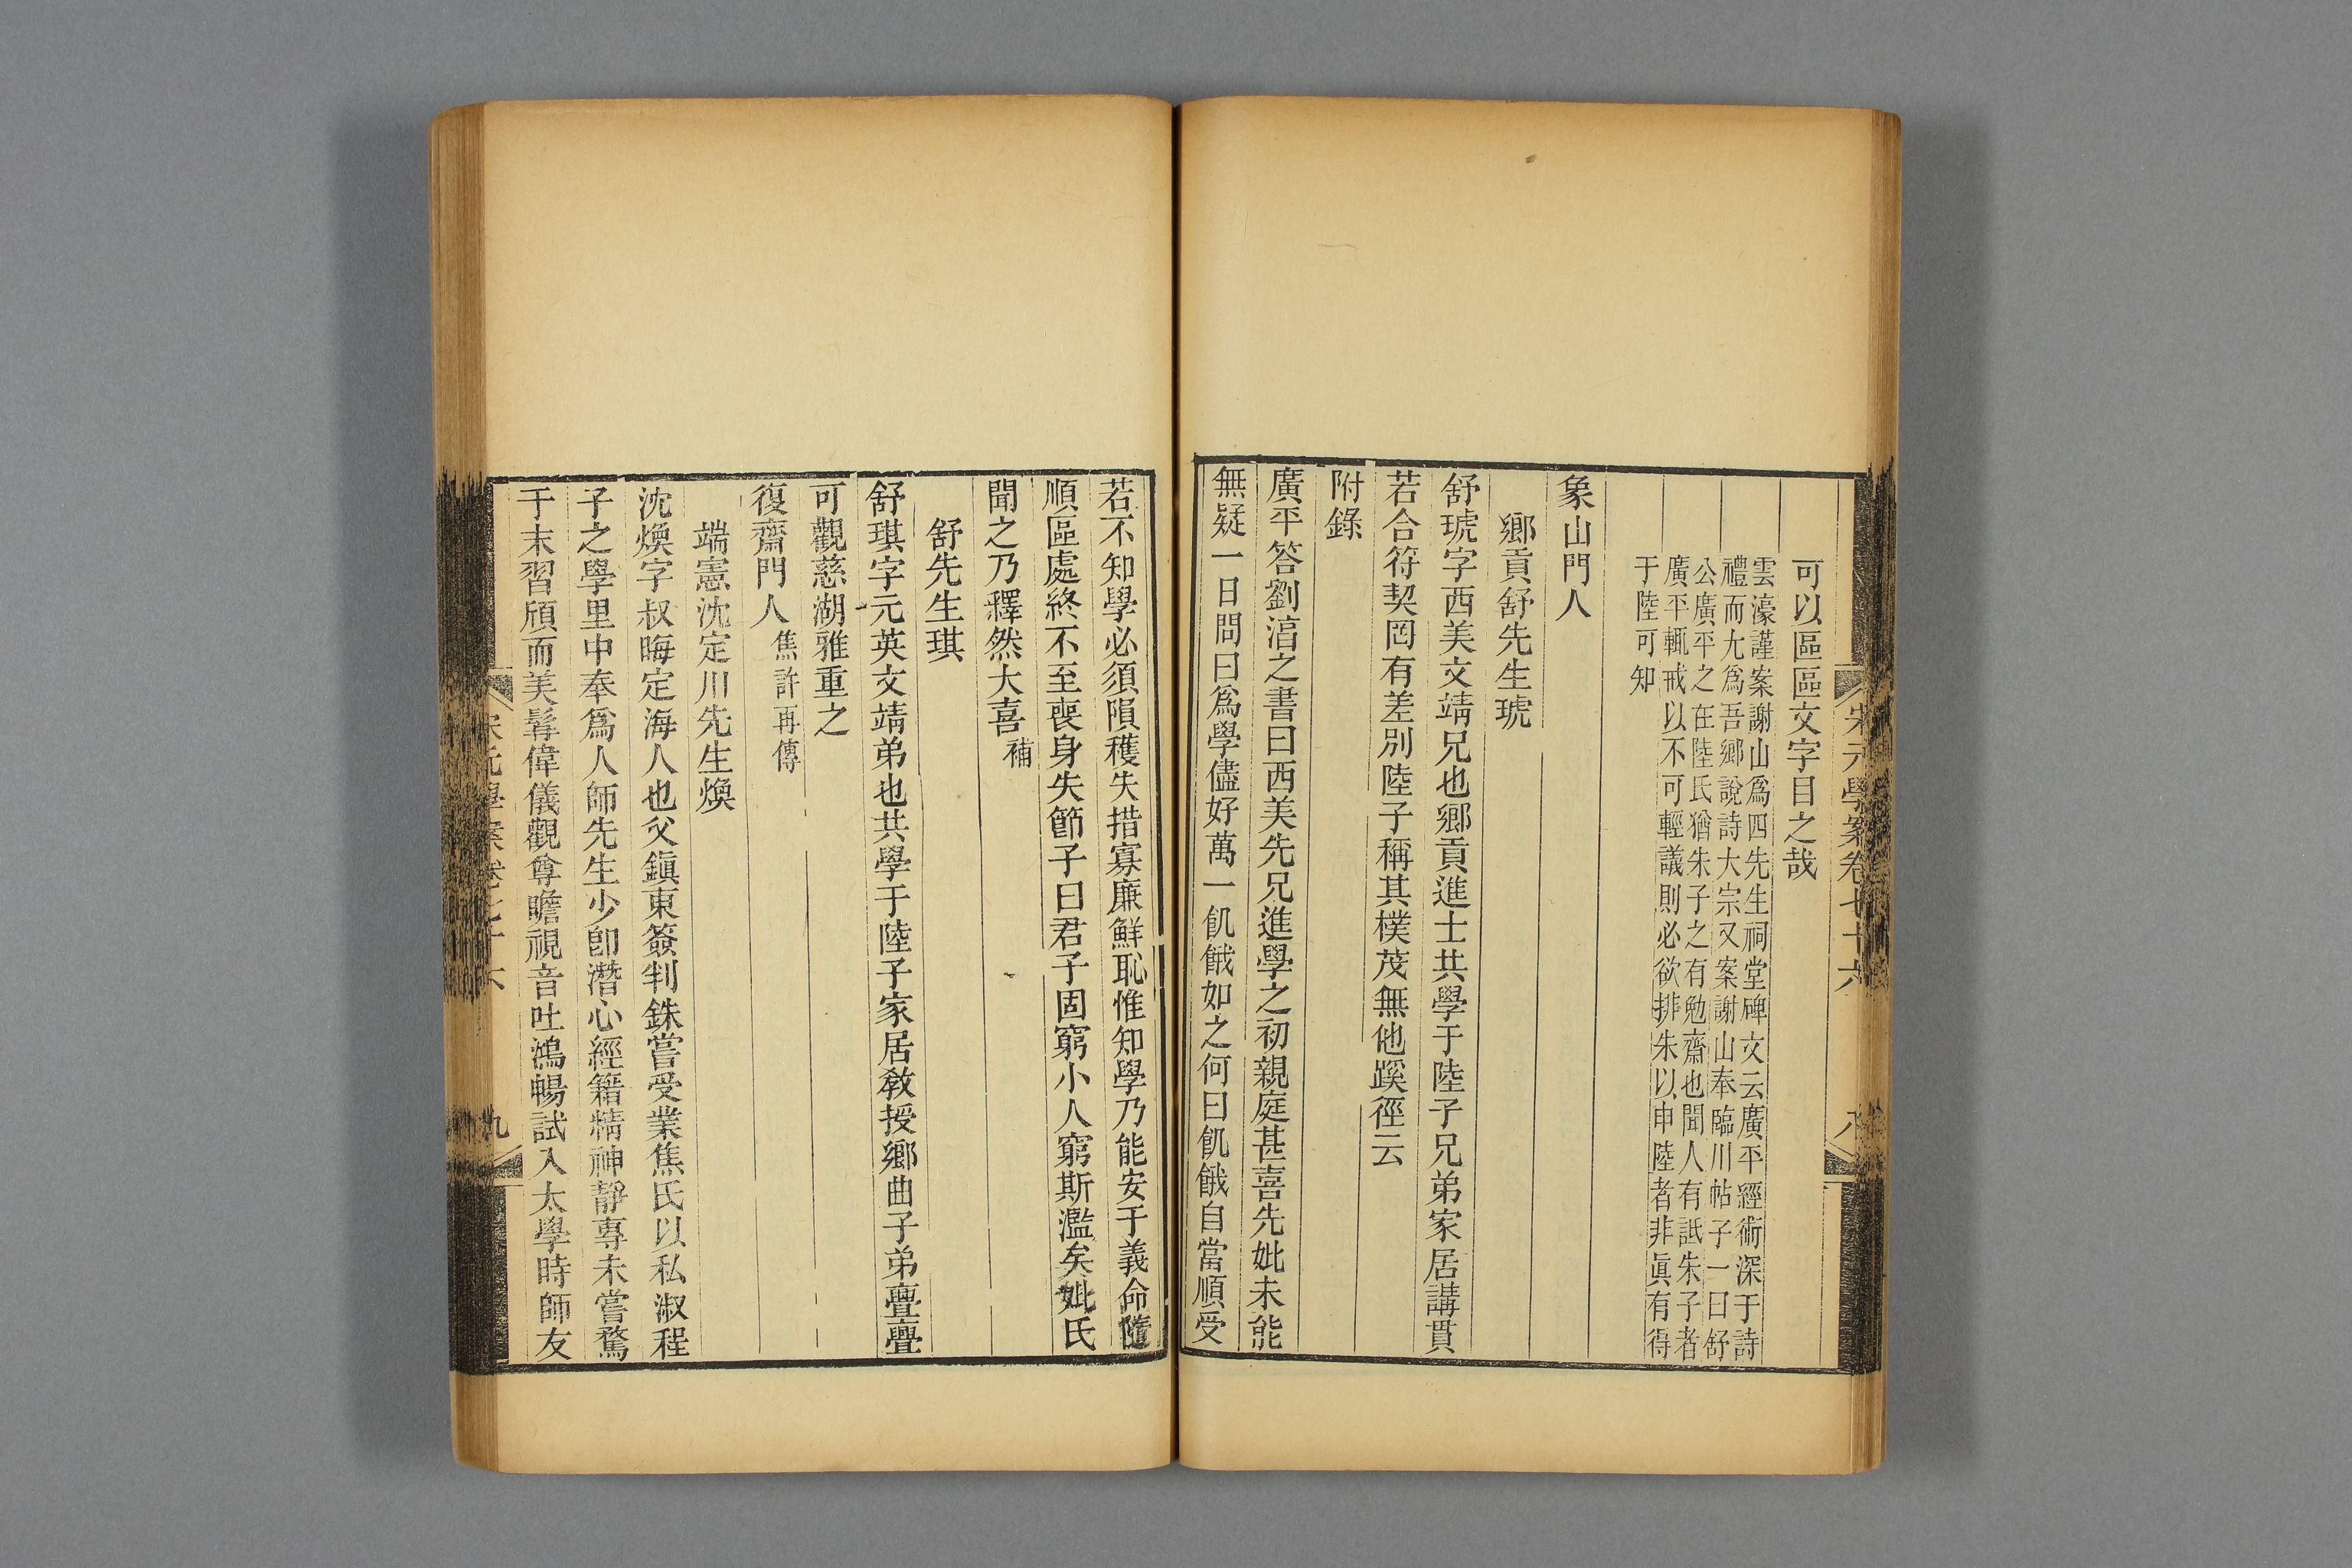 宋元學案卷七十六
八
可以區區文字目之哉
雲濠謹案謝山爲四先生祠堂碑文云廣平經術深于詩
禮而尤爲吾鄉說詩大宗又案謝山奉臨川帖子一曰舒
公廣平之在陸氏猶朱子之有勉齋也聞人有詆朱子者
廣平輒戒以不可輕議則必欲排朱以申陸者非眞有得
于陸可知
象山門人
鄉貢舒先生琥
舒琥字西美文靖兄也鄉貢進士共學于陸子兄弟家居講貫
若合符契罔有差別陸子稱其樸茂無他蹊徑云
附錄
廣平答劉淯之書曰西美先兄進學之初親庭甚喜先妣未能
無疑一日問曰爲學儘好萬一飢餓如之何曰飢餓自當順受
若不知學必須隕穫失措寡廉鮮恥惟知學乃能安于義命隨
順區處終不至喪身失節子曰君子固窮小人窮斯濫矣妣氏
聞之乃釋然大喜補
舒先生琪
舒琪字元英文靖弟也共學于陸子家居教授鄉曲子弟亹亹
可觀慈湖雅重之
復齋門人焦許再傳
端憲沈定川先生煥
沈煥字叔晦定海人也父鎭東簽判銖嘗受業焦氏以私淑程
子之學里中奉爲人師先生少卽潛心經籍精神靜專未嘗騖
于末習頎而美髯偉儀觀尊瞻視音吐鴻暢試入太學時師友
宋元學案卷七十六
九